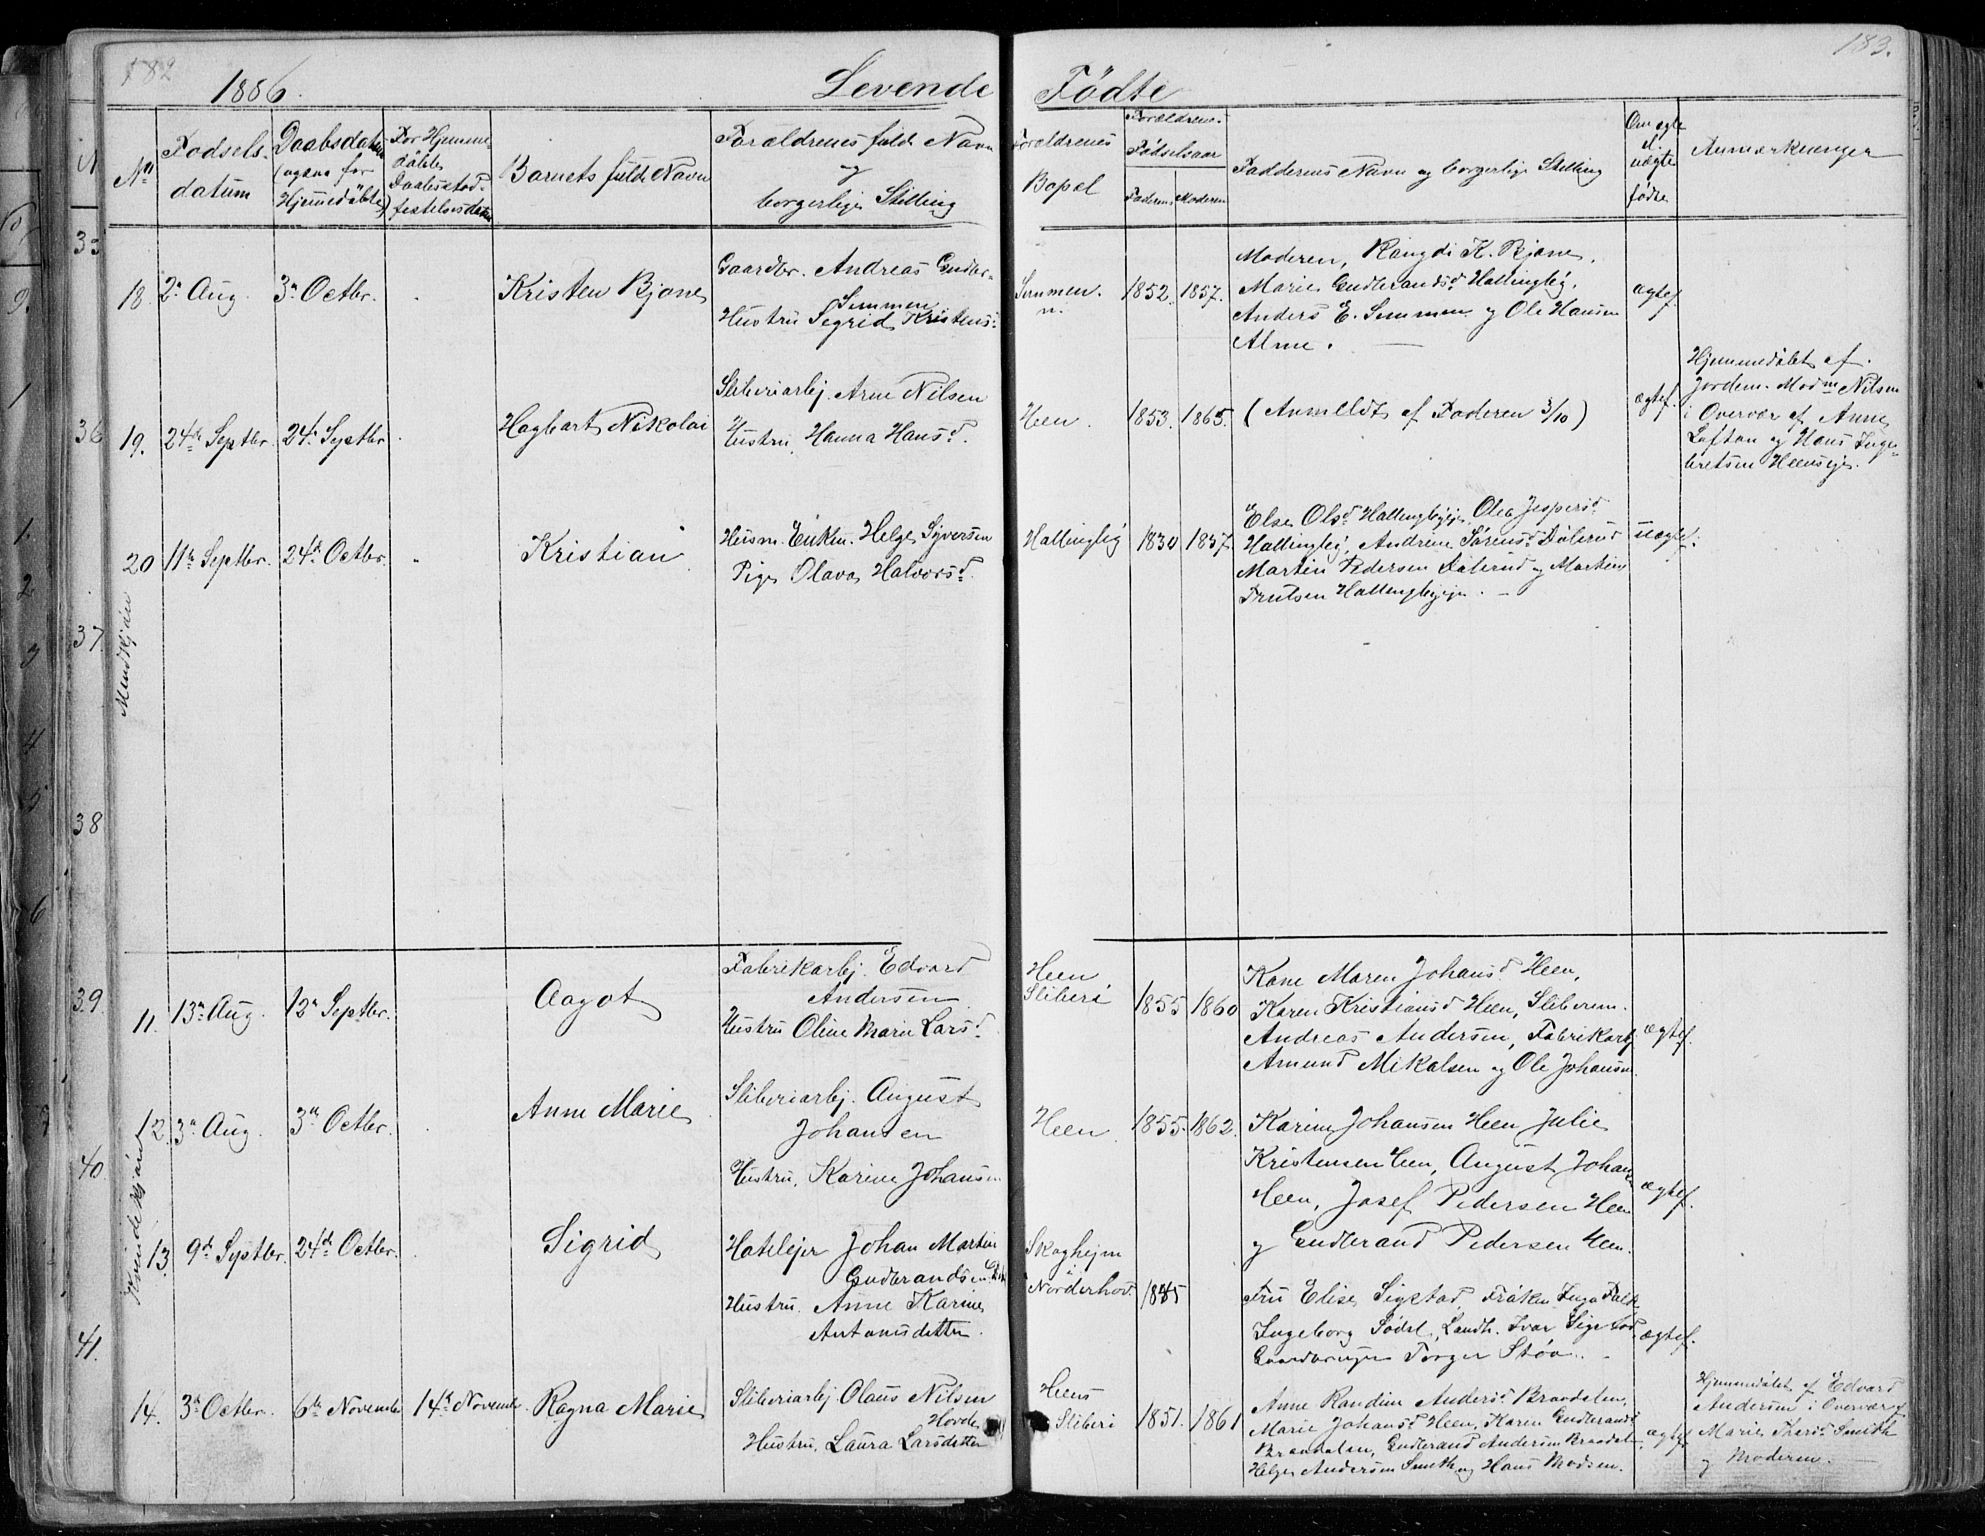 182
1886.
Levende Fødte
183.
No
Fødsels-
datum
Daabsdatum
(ogsaa for
Hjemmedøbte)
For Hjemme
døbte
Barnets fulde Navn
Forældrenes fulde Navn
og
borgerlige Stilling
Forældrenes
Bopæl
Forældrenes
Fødselsaar
Faderens
Moderens
Faddernes Navn og borgerlige Stilling
Om ægte
el.
uægte
fødte
Anmærkninger
33
36
37
38
39
40
41.
Mandkjøn
18. 2n Aug. 3n Octbr. Kristen Bjone
Gaardbr. Andreas Gudbr.
Semmen
Hustru Sigrid Kristens.
Semmen. 1852. 1857.
Moderen, Rangdi K. Bjone,
Marie Gudbrandsd. Hallingby,
Anders E. Semmen og Ole Hansen
Alme.
ægtef.
19. 24de Septbr. 24de Septbr. Hagbart Nikolai
Sliberiarbj. Arne Nilsen
Hustru, Hanna Hansd.
Heen. 1853. 1865. (Anmeldt af Faderen 3/10)
ægtef.
Hjemmedøbt af
Jordem. Mad. Nilsen
i Overvær af Anne
Loftan og Hans Inge-
bretsen Heenseje.
20 11te Septbr. 24de Octbr. Kristian
Husm. Enkem. Helge Syversen
Pige Olava Halvorsd.
Hallingby 1830 1857
Else Olsd. Hallingbyeje, Olea Jespersd.
Hallingby, Andrine Sørensd. Dølerud
Martin Pedersen Dølerud og Martin
Trulsen Hallingbyeje.
uægte.
Kvindekjøn
11. 13n Aug. 12n Septbr. Aagot
Fabrikarbj. Edvard
Andersen
Hustru Oline Marie Larsd.
Heen
Sliberi 1855 1860
Kone Maren Johansd. Heen,
Karen Kristiansd. Heen, Sliberem.
Andreas Andersen, Fabrikarbj
Amund Mikalsen og Ole Johansen.
ægtef.
12. 3n Aug. 3n Octbr. Anne Marie
Sliberiarbj. August
Johansen
Hustru, Karine Johansen
Heen. 1855. 1862.
Karine Johansen Heen Julie
Kristensen Heen, August Johan
Heen, Josef Pedersen Heen
og Gudbrand Pedersen Heen.
ægtef.
13. 9de Septbr. 24de Octbr. Sigrid
Hotelejer Johan Martin
Gudbrandsen
Hustru. Anne Karine
Antonsdatter.
Skoghejm
i
Norderhov. 1845
Fru Elise Sigstad, Frøken Inga Falk
Ingeborg Sødel, Landh. Ivar Sigstad
Gaardbruger Torger Støa.
ægtef.
14. 3n Octbr. 6te Novembr 14de Novembr. Ragna Marie
Sliberiarbj. Olaus Nilsen
Hovde
Hustru, Laura Larsdatter
Heens
Sliberi 1851. 1861
Anne Randine Andersd. Braadalen,
Marie Johansd. Heen, Karen Gudbrandsd.
Braadalen, Gudbrand Andersen Braadalen
Helge Andersen Smith og Hans Madsen.
ægtef.
Hjemmedøbt af Edvard
Andersen i Overvær af
Marie Thersd. Smith
og Moderen.